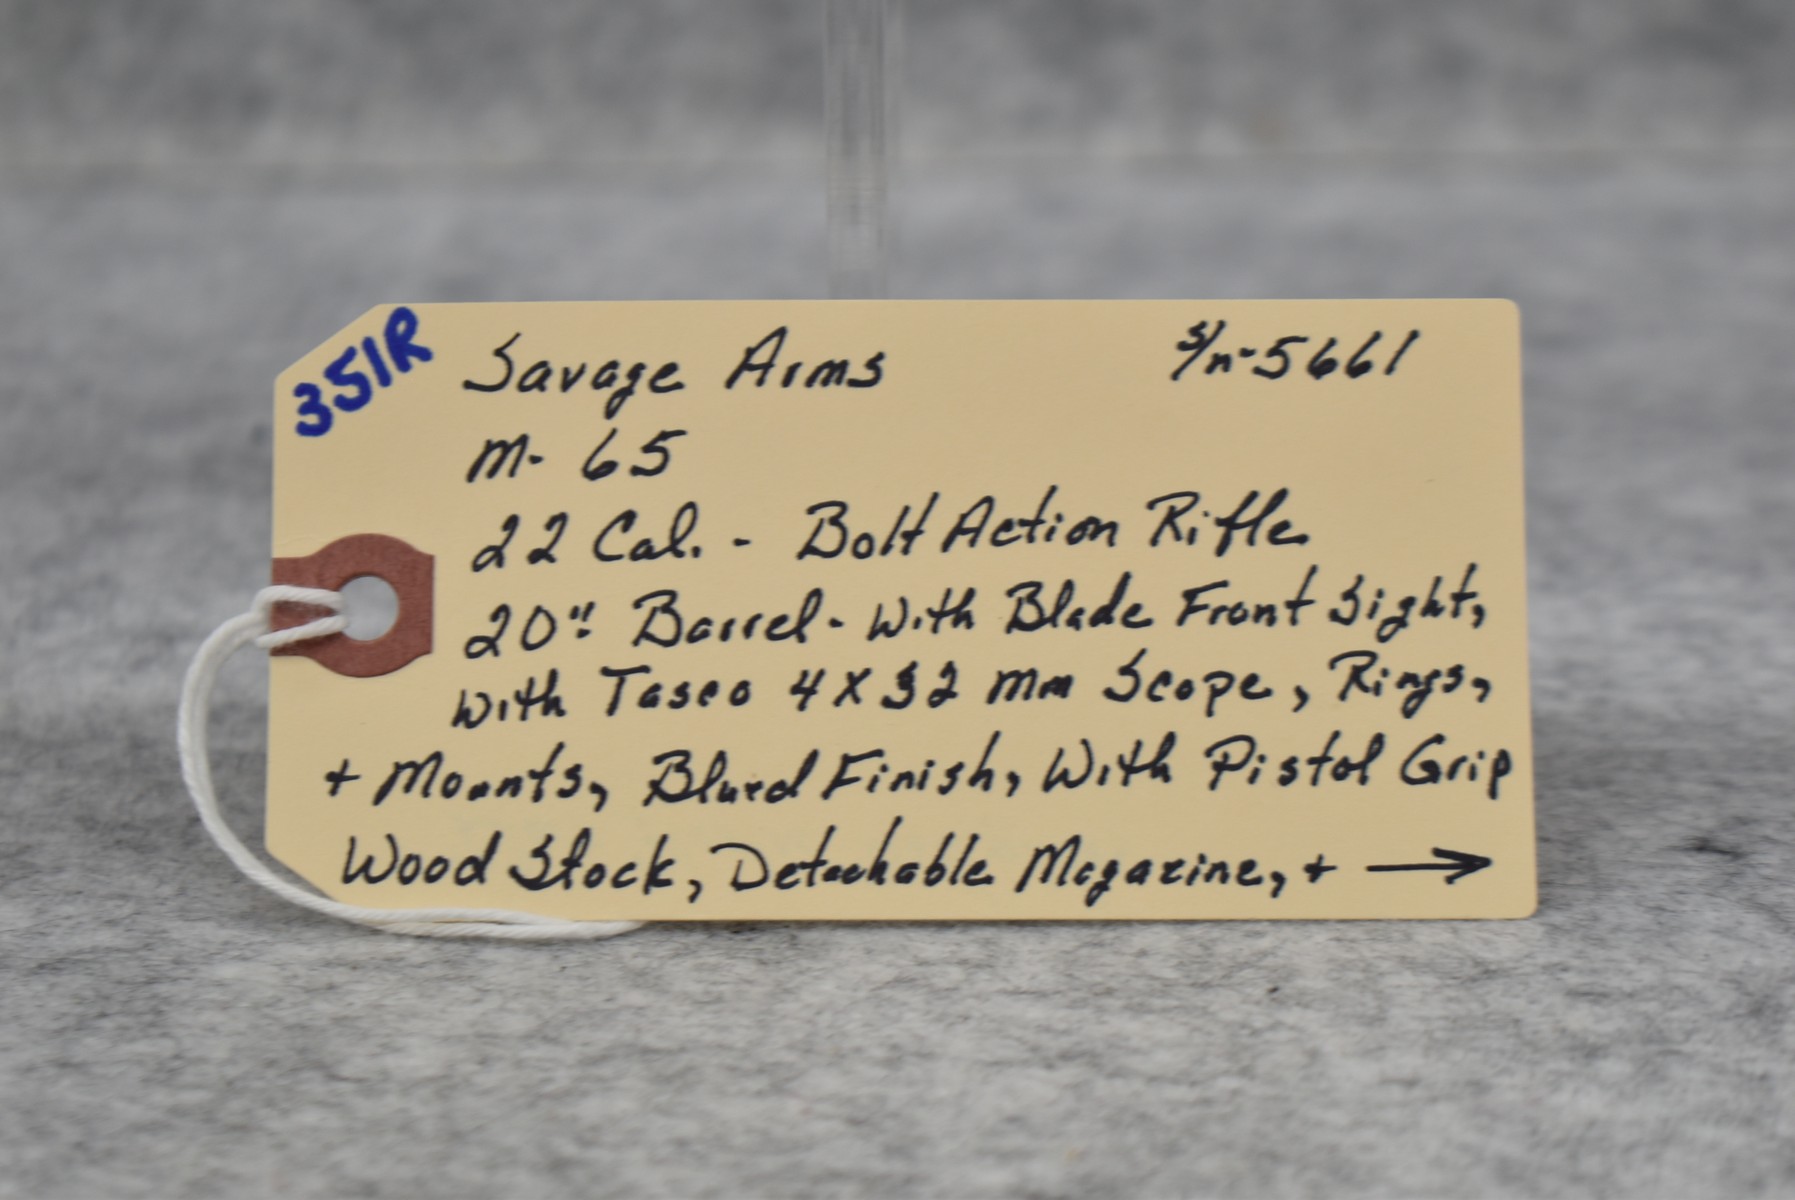 351R
Savage Arms S/n-5661
M- 65
22 Cal. - Bolt Action Rifle
20" Barrel - With Blade Front Sight,
With Tasco 4X32 mm Scope, Rings,
+ Mounts, Blued Finish, With Pistol Grip
Wood Stock, Detachable Magazine, + →